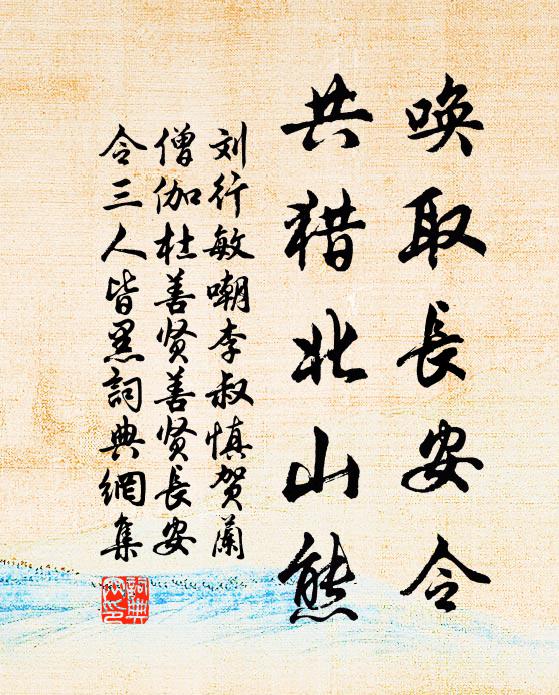 唤取长安令
共猎北山熊
刘行敏嘲李叔慎贺蘭
僧伽杜善贤善贤长安
令三人皆黑詞典網集